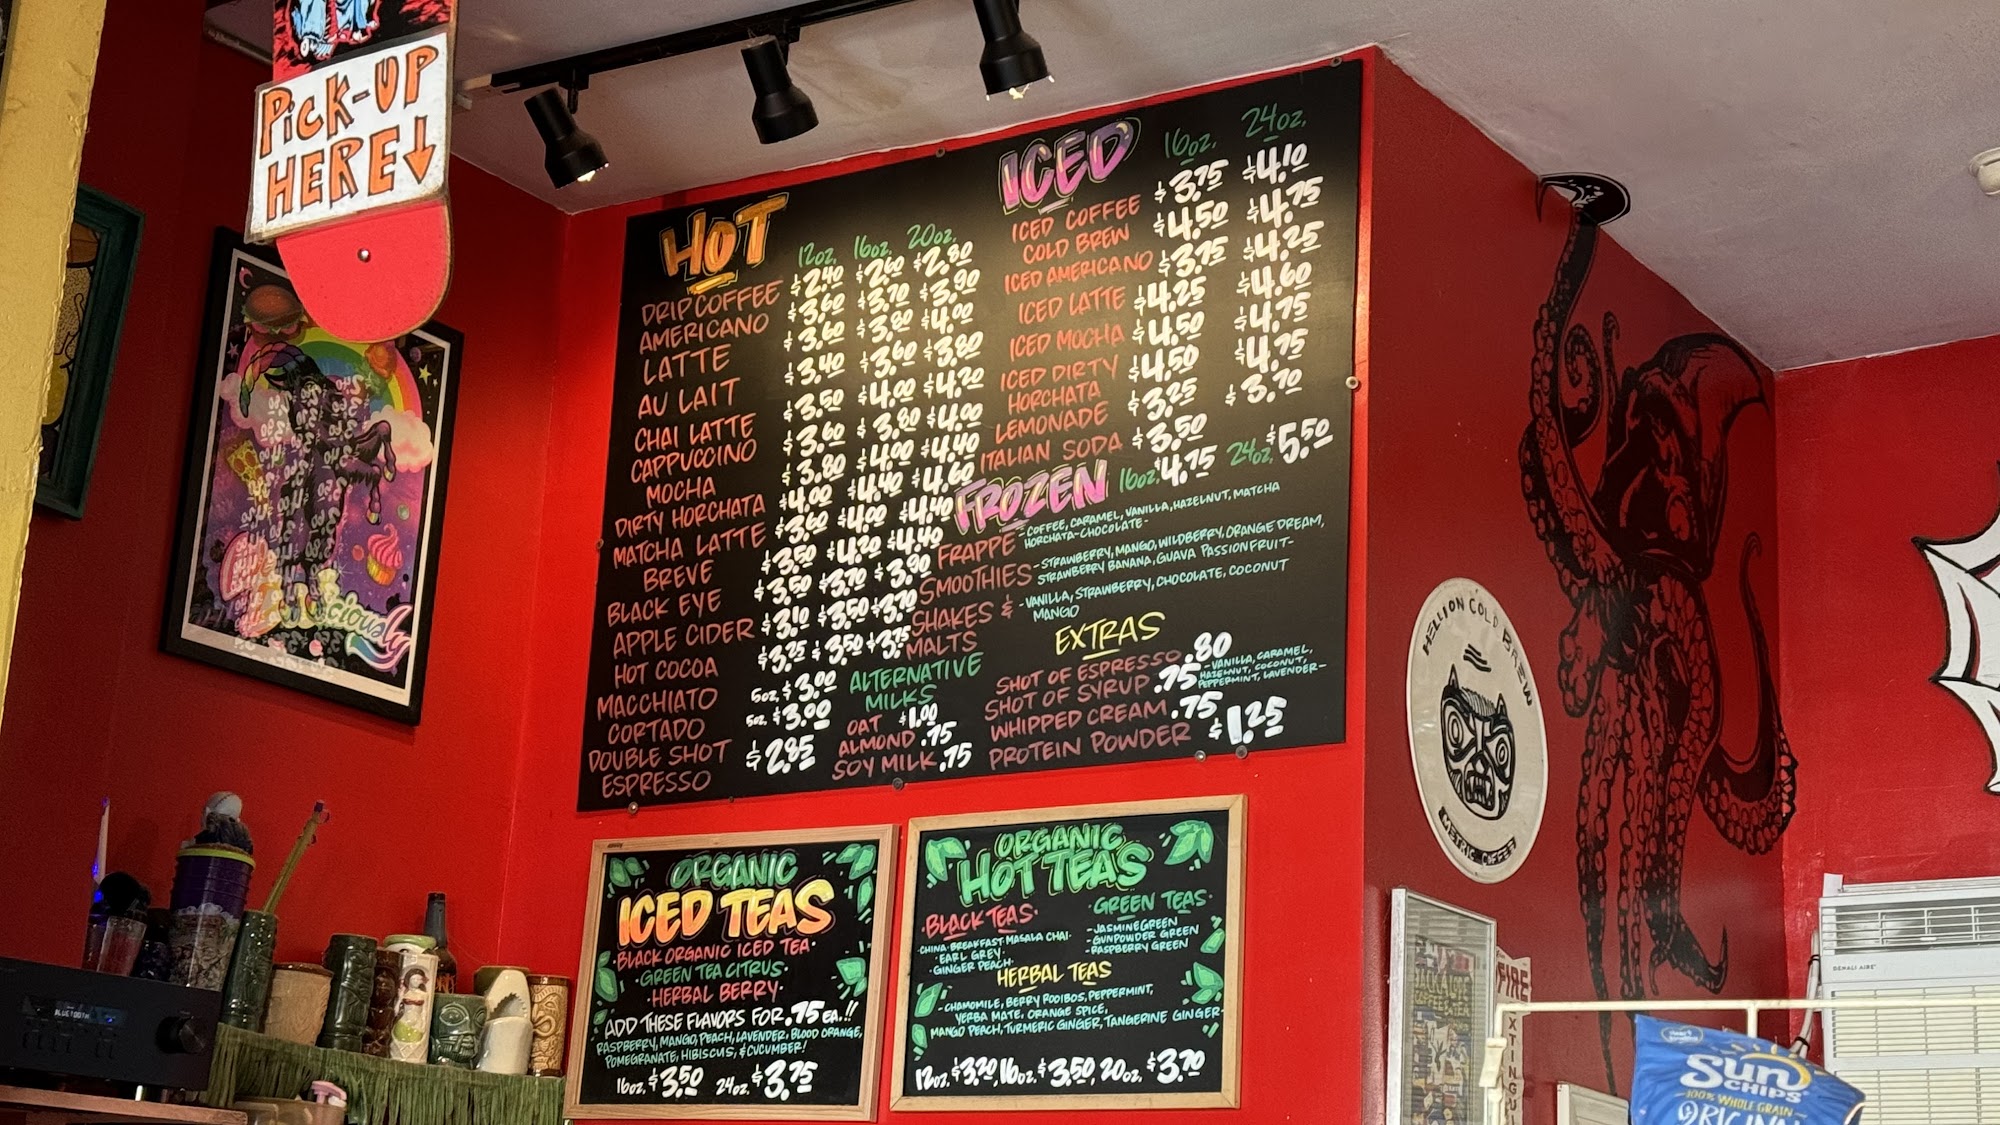 PICK-UP
HERE↓
HOT
12oz. 16oz. 20oz.
DRIP COFFEE $2.40 $2.60 $2.80
AMERICANO $3.60 $3.70 $3.90
LATTE $3.60 $3.80 $4.00
AU LAIT $3.40 $3.60 $3.80
CHAI LATTE $3.50 $4.00 $4.20
CAPPUCCINO $3.60 $3.80 $4.00
MOCHA $3.80 $4.00 $4.40
DIRTY HORCHATA $4.00 $4.40 $4.60
MATCHA LATTE $3.60 $4.00 $4.40
BREVE $3.50 $4.20 $4.40
BLACK EYE $3.50 $3.70 $3.90
APPLE CIDER $3.10 $3.50 $3.70
HOT COCOA $3.25 $3.50 $3.75
MACCHIATO 5oz. $3.00
CORTADO 5oz. $3.00
DOUBLE SHOT $2.85
ESPRESSO
ALTERNATIVE
MILKS
OAT $1.00
ALMOND .75
SOY MILK .75
ICED 16oz. 24oz.
ICED COFFEE $3.75 $4.10
COLD BREW $4.50 $4.75
ICED AMERICANO $3.75 $4.25
ICED LATTE $4.25 $4.60
ICED MOCHA $4.50 $4.75
ICED DIRTY $4.50 $4.75
HORCHATA
LEMONADE $3.25 $3.70
ITALIAN SODA $3.50
FROZEN 16oz. $4.75 24oz. $5.50
FRAPPE - COFFEE, CARAMEL, VANILLA, HAZELNUT, MATCHA
HORCHATA-CHOCOLATE-
SMOOTHIES - STRAWBERRY, MANGO, WILDBERRY, ORANGE DREAM,
STRAWBERRY BANANA, GUAVA PASSIONFRUIT-
SHAKES & - VANILLA, STRAWBERRY, CHOCOLATE, COCONUT
MALTS MANGO
EXTRAS
SHOT OF ESPRESSO .80
SHOT OF SYRUP .75 - VANILLA, CARAMEL,
HAZELNUT, COCONUT,
PEPPERMINT, LAVENDER-
WHIPPED CREAM .75
PROTEIN POWDER $1.25
ORGANIC
ICED TEAS
·BLACK ORGANIC ICED TEA·
·GREEN TEA CITRUS·
·HERBAL BERRY·
ADD THESE FLAVORS FOR .75 EA.!!
RASPBERRY, MANGO, PEACH, LAVENDER, BLOOD ORANGE,
POMEGRANATE, HIBISCUS, & CUCUMBER!
16oz. $3.50 24oz. $3.75
ORGANIC
HOT TEAS
·BLACK TEAS·
·CHINA·BREAKFAST·MASALA CHAI·
·EARL GREY·
·GINGER PEACH·
·GREEN TEAS·
-JASMINE GREEN
-GUNPOWDER GREEN
-RASPBERRY GREEN
HERBAL TEAS
-CHAMOMILE, BERRY ROOIBOS, PEPPERMINT,
YERBA MATE, ORANGE SPICE,
MANGO PEACH, TURMERIC GINGER, TANGERINE GINGER-
12oz. $3.20, 16oz. $3.50, 20oz. $3.70
HELLION COLD BREW
METRIC COFFEE
FIRE
BLUETOOTH
DENALI AIRE
Sun
CHIPS
100% WHOLE GRAIN